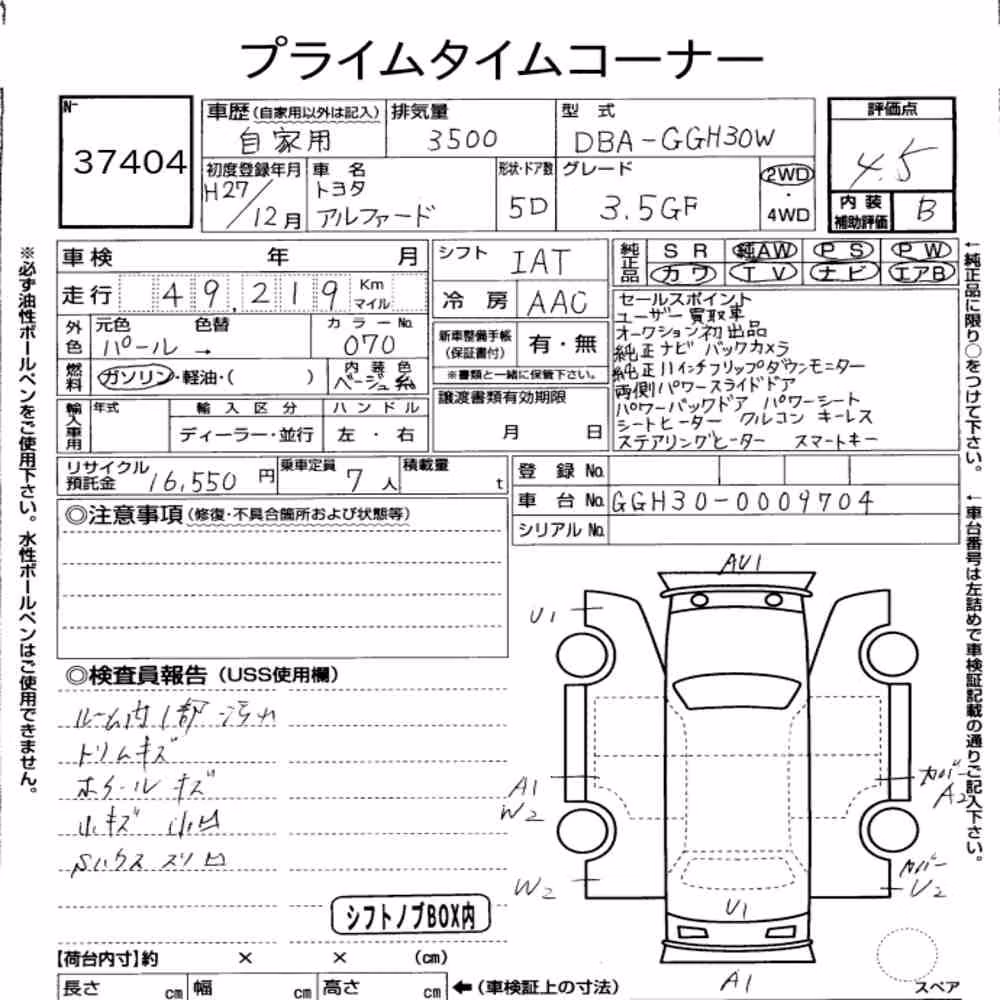 プライムタイムコーナー
N-
37404
車歴(自家用以外は記入)
自家用
排気量
3500
型式
DBA-GGH30W
評価点
4.5
初度登録年月
H27/12月
車名
トヨタ
アルファード
形状・ドア数
5D
グレード
3.5GF
2WD
・
4WD
内装
補助評価
B
車検 年 月
シフト
IAT
純正品
SR 純AW PS PW
カワ TV ナビ エアB
走行 49,219 Km マイル
冷房
AAC
セールスポイント
ユーザー買取車
オークション初出品
純正ナビ バックカメラ
純正11インチフリップダウンモニター
両側パワースライドドア
パワーバックドア パワーシート
シートヒーター クルコン キーレス
ステアリングヒーター スマートキー
外色
元色 色替
パール→
カラーNo.
070
新車整備手帳
(保証書付)
有・無
※書類と一緒に保管下さい。
燃料
ガソリン・軽油・( )
内装色
ベージュ系
譲渡書類有効期限
月 日
輸入車用
年式
輸入区分
ディーラー・並行
ハンドル
左・右
リサイクル
預託金
16,550円
乗車定員
7人
積載量
t
登録No.
車台No.
GGH30-0009704
シリアルNo.
◎注意事項(修復・不具合箇所および状態等)
◎検査員報告(USS使用欄)
ルーム内1部汚れ
トリムキズ
ホイールキズ
小キズ 小凹
シフトノブBOX内
【荷台内寸】約 × × (cm)
長さ cm 幅 cm 高さ cm ←(車検証上の寸法)
AU1
U1
A1
W2
W2
カバー
A2
カバー
U2
U1
A1
スペア
※必ず油性ボールペンをご使用下さい。水性ボールペンはご使用できません。
←純正品に限り○をつけて下さい。
←車台番号は左詰めで車検証記載の通りご記入下さい。